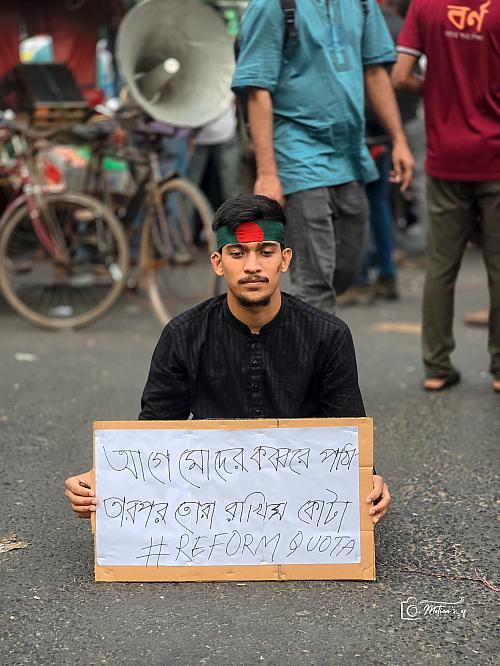 বর্ণ
আগে মোদের কবরে পাঠা
তারপর তোরা রাখিস কোটা
#REFORM QUOTA